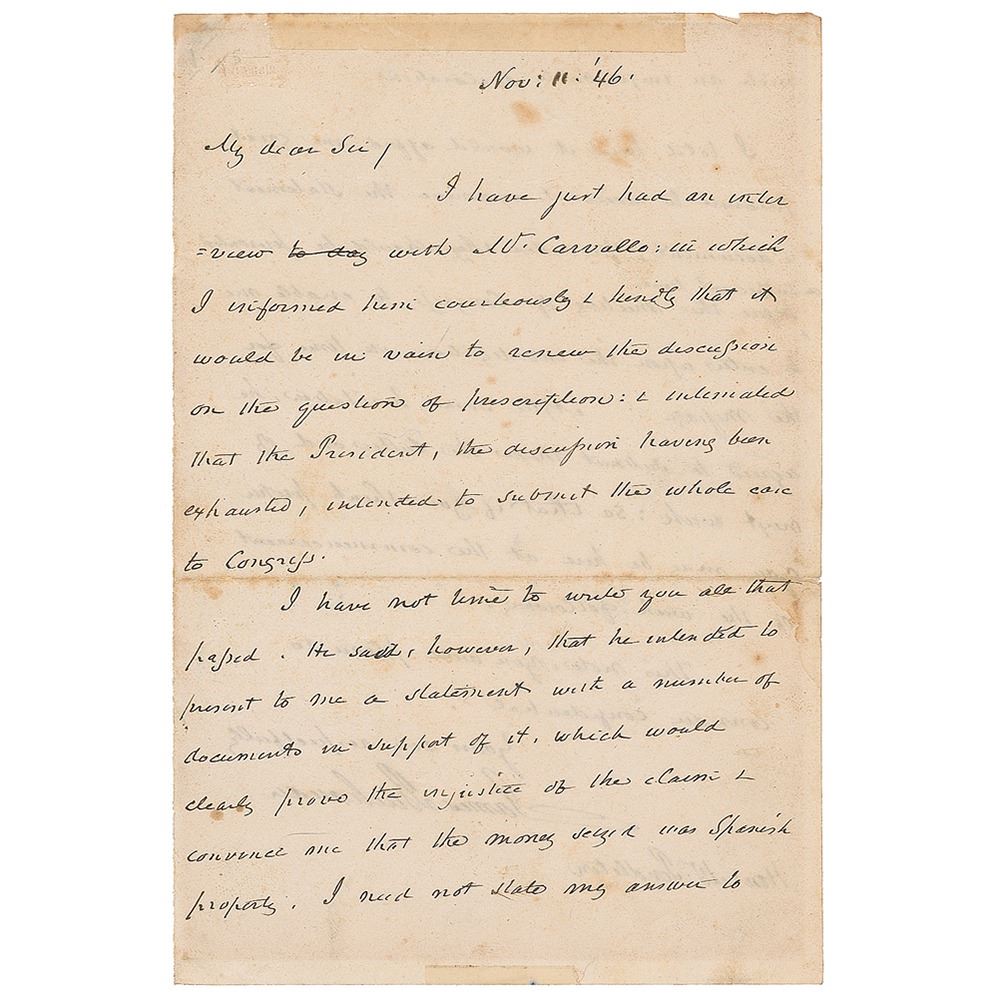 Nov: 11. '46.
My dear Sir,
I have just had an inter
=view to day with Mr. Carvallo: in which
I informed him courteously & kindly that it
would be in vain to renew the discussion
on the question of prescription: & intimated
that the President, the discussion having been
exhausted, intended to submit the whole case
to Congress.
I have not time to write you all that
passed. He said, however, that he intended to
present to me a statement with a number of
documents in support of it, which would
clearly prove the injustice of the claim &
convince me that the money seized was Spanish
property. I need not state my answer to